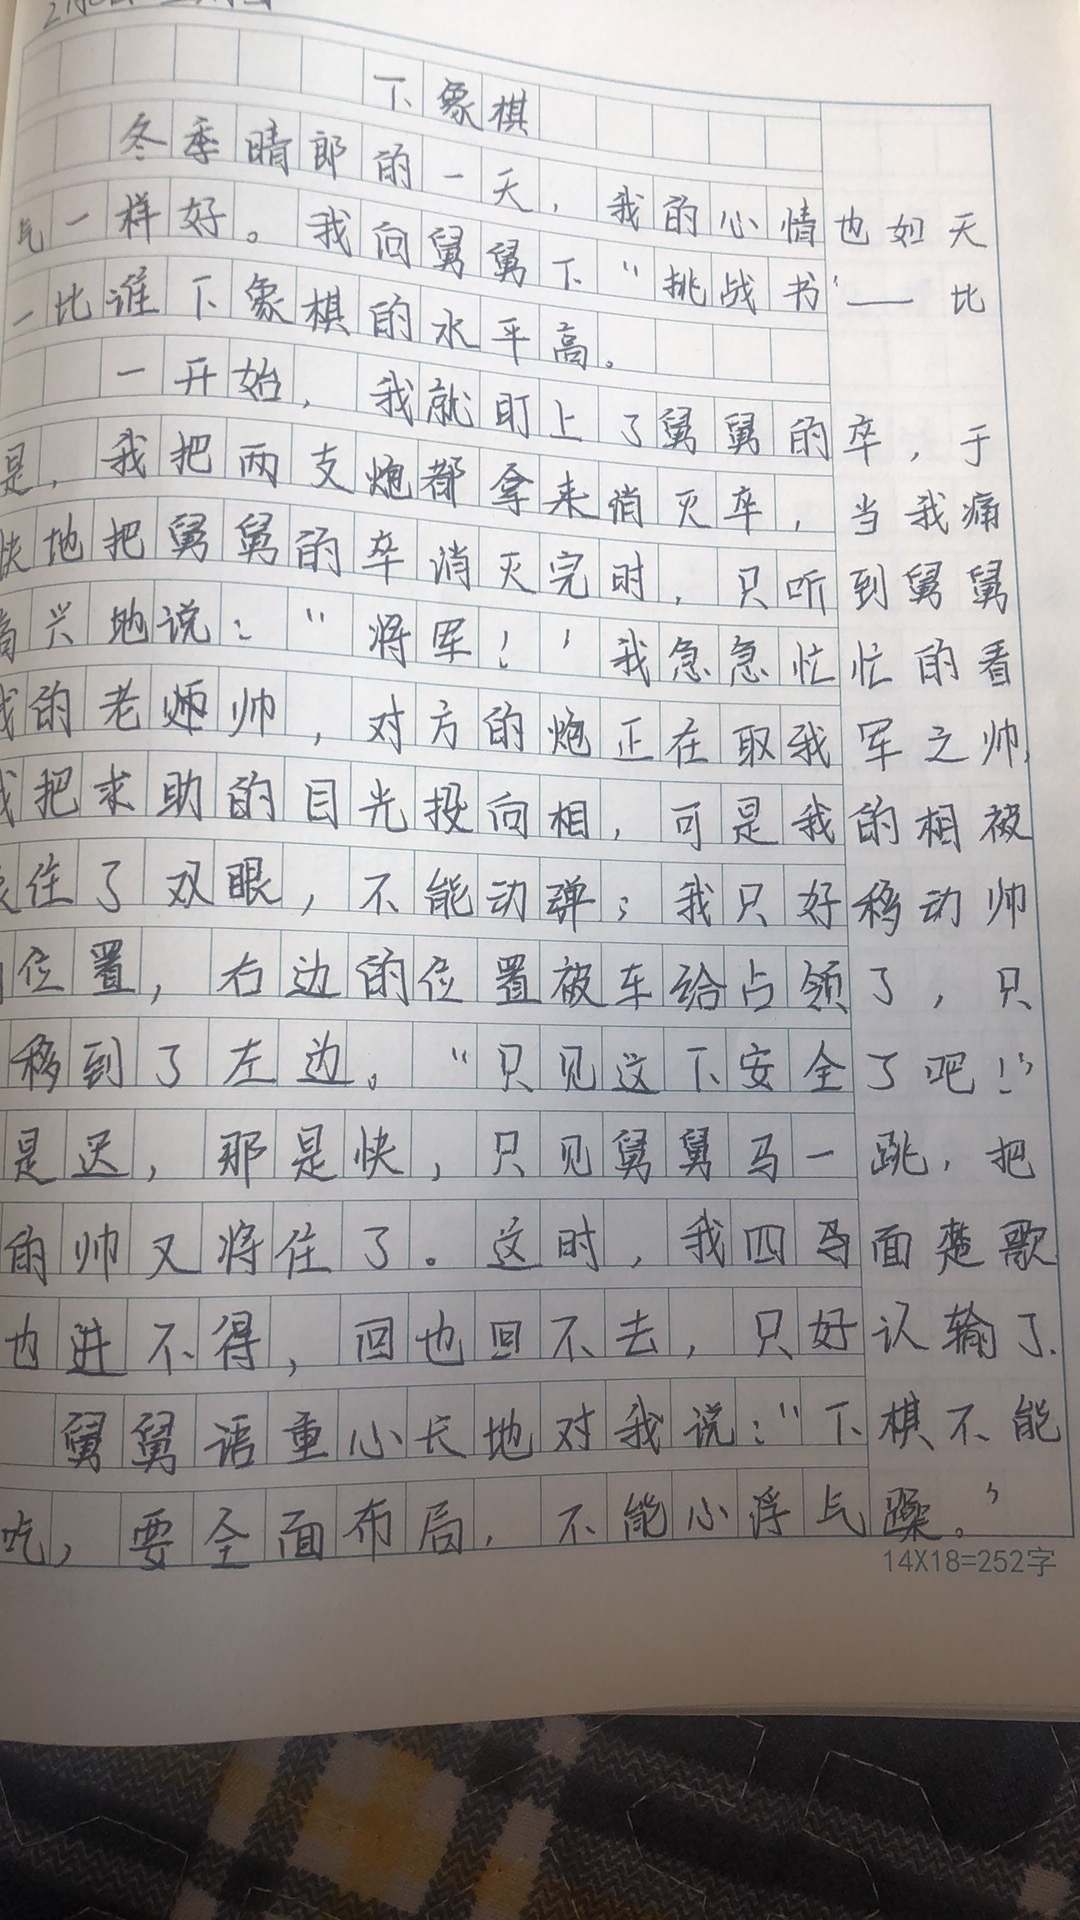 下象棋
冬季晴郎的一天，我的心情也如天
气一样好。我向舅舅下“挑战书”——比
一比谁下象棋的水平高。
一开始，我就盯上了舅舅的卒，于
是，我把两支炮都拿来消灭卒，当我痛
快地把舅舅的卒消灭完时，只听到舅舅
高兴地说：“将军！”我急急忙忙的看
我的老师帅，对方的炮正在取我军之帅，
我把求助的目光投向相，可是我的相被
住了双眼，不能动弹；我只好移动帅
位置，右边的位置被车给占领了，只
移到了左边。“只见这下安全了吧！”
是迟，那是快，只见舅舅马一跳，把
的帅又将住了。这时，我四马面楚歌
也进不得，回也回不去，只好认输了。
舅舅语重心长地对我说：“下棋不能
吃，要全面布局，不能心浮气躁。”
14X18=252字